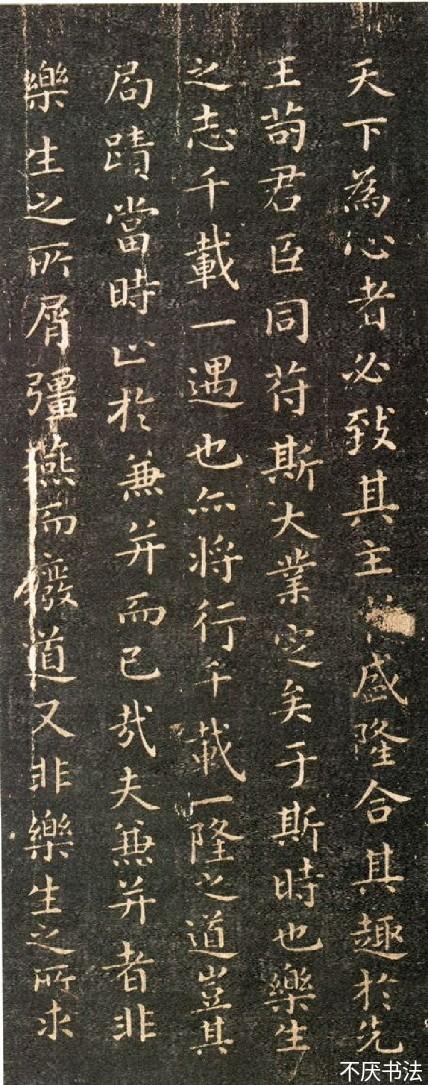 天下為心者必致其主於盛隆合其趣於先
王苟君臣同符斯大業定矣于斯時也樂生
之志千載一遇也亦將行千載一隆之道豈其
局蹟當時止於兼并而已哉夫兼并者非
樂生之所屑彊燕而廢道又非樂生之所求
不厌书法